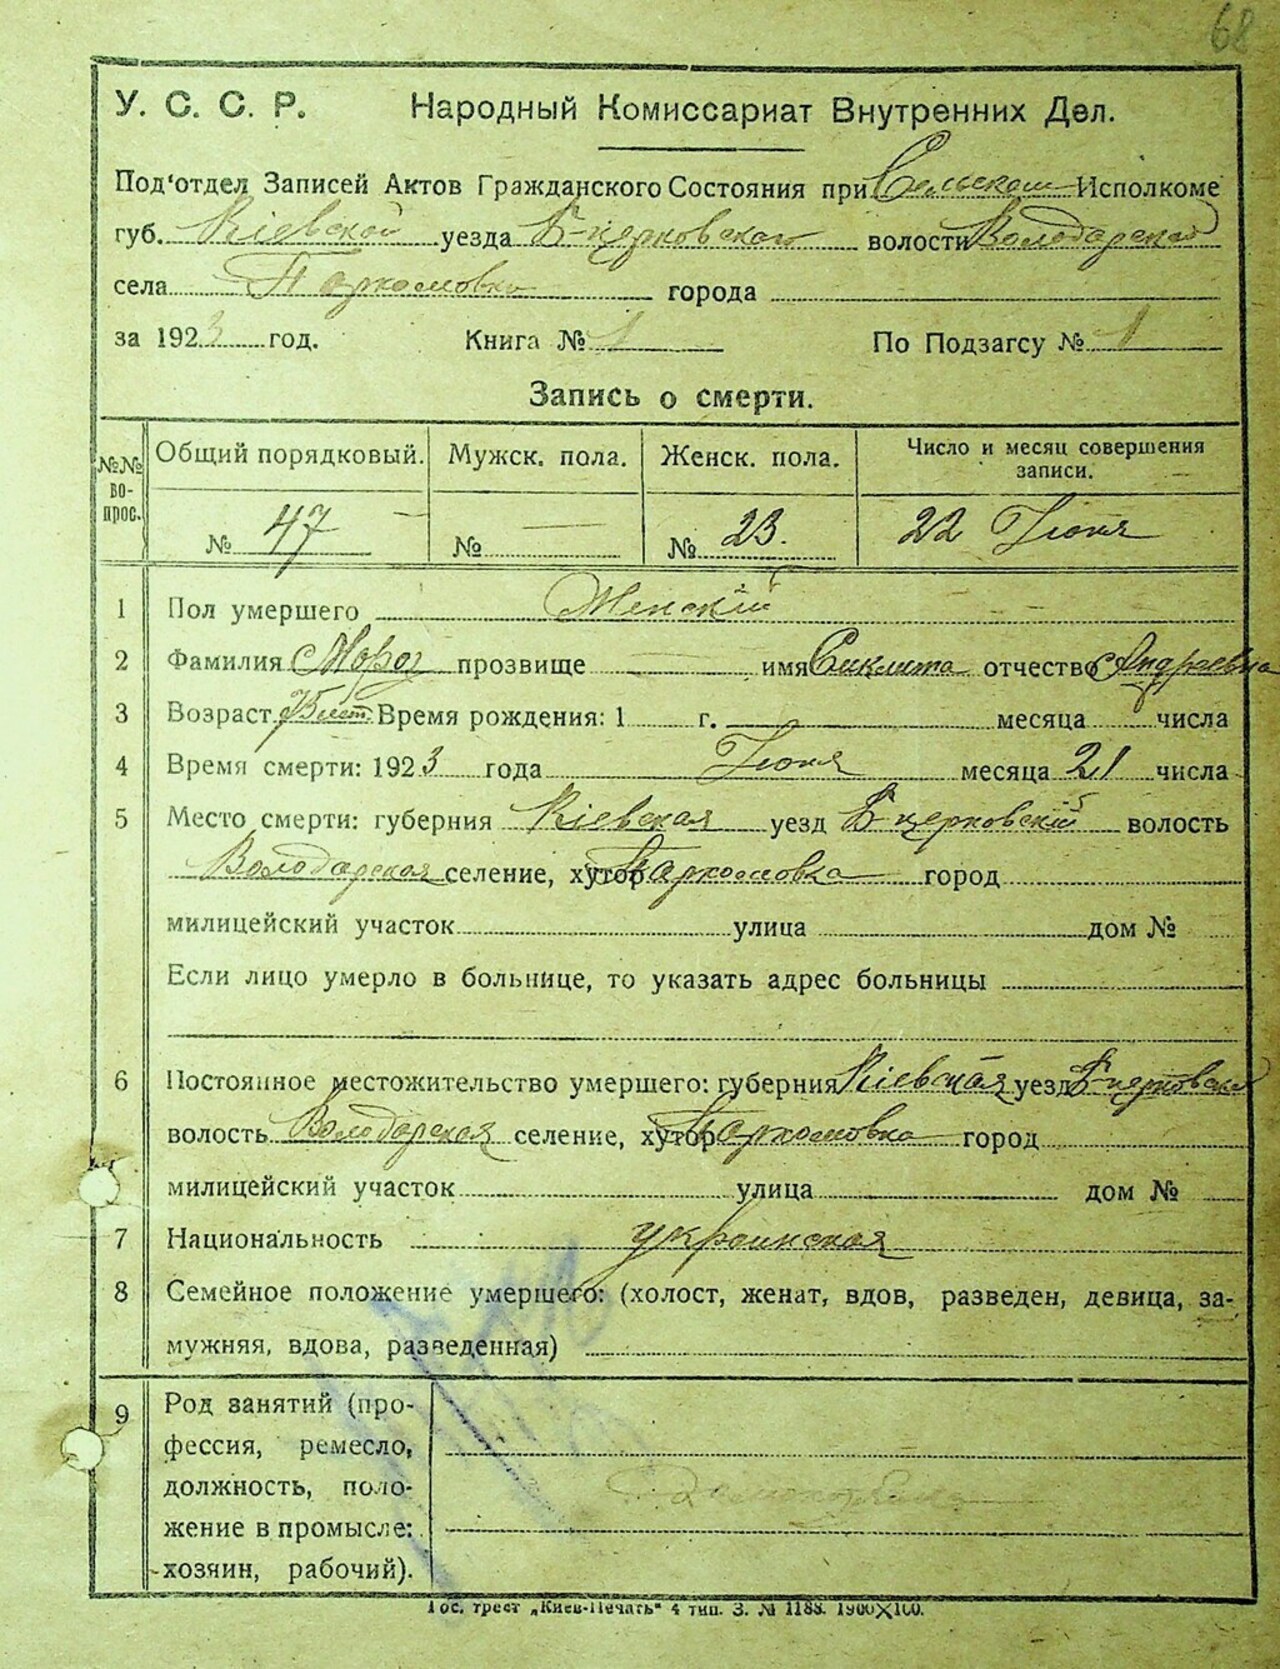 68
У. С. С. Р. Народный Комиссариат Внутренних Дел.
Под'отдел Записей Актов Гражданского Состояния при Сельском Исполкоме
губ. Кіевской уезда Б-церковского волости Володарской
села Пархомовка города
за 1923 год. Книга № 1 По Подзагсу № 1
Запись о смерти.
№№ вопрос. Общий порядковый. Мужск. пола. Женск. пола. Число и месяц совершения записи.
№ 47 — № — № 23. 22 Іюня
1 Пол умершего Женскій
2 Фамилия Мороз прозвище — имя Сиклита отчество Андреевна
3 Возраст лет. Время рождения: 1 г. месяца числа
4 Время смерти: 1923 года Іюня месяца 21 числа
5 Место смерти: губерния Кіевская уезд Б-церковскій волость
Володарская селение, хутор Пархомовка город
милицейский участок улица дом №
Если лицо умерло в больнице, то указать адрес больницы
6 Постоянное местожительство умершего: губерния Кіевская уезд Б-церковск
волость Володарская селение, хутор Пархомовка город
милицейский участок улица дом №
7 Национальность украинская
8 Семейное положение умершего: (холост, женат, вдов, разведен, девица, за-
мужняя, вдова, разведенная)
9 Род занятий (про-
фессия, ремесло,
должность, поло-
жение в промысле:
хозяин, рабочий).
Гос. трест „Киев-Печать" 4 тип. З. № 1188. 1900×100.